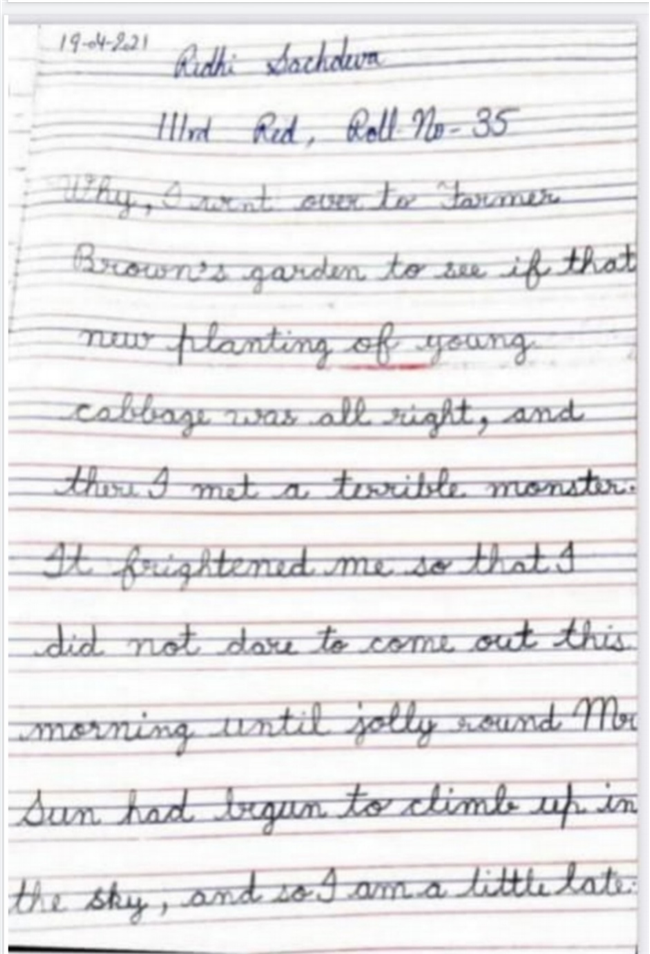 19-04-2021
Ridhi Sachdeva
IIIrd Red, Roll-No-35
Why, I went over to Farmer
Brown's garden to see if that
new planting of young
cabbage was all right, and
there I met a terrible monster.
It frightened me so that I
did not dare to come out this
morning until jolly round Mr
Sun had begun to climb up in
the sky, and so I am a little late.